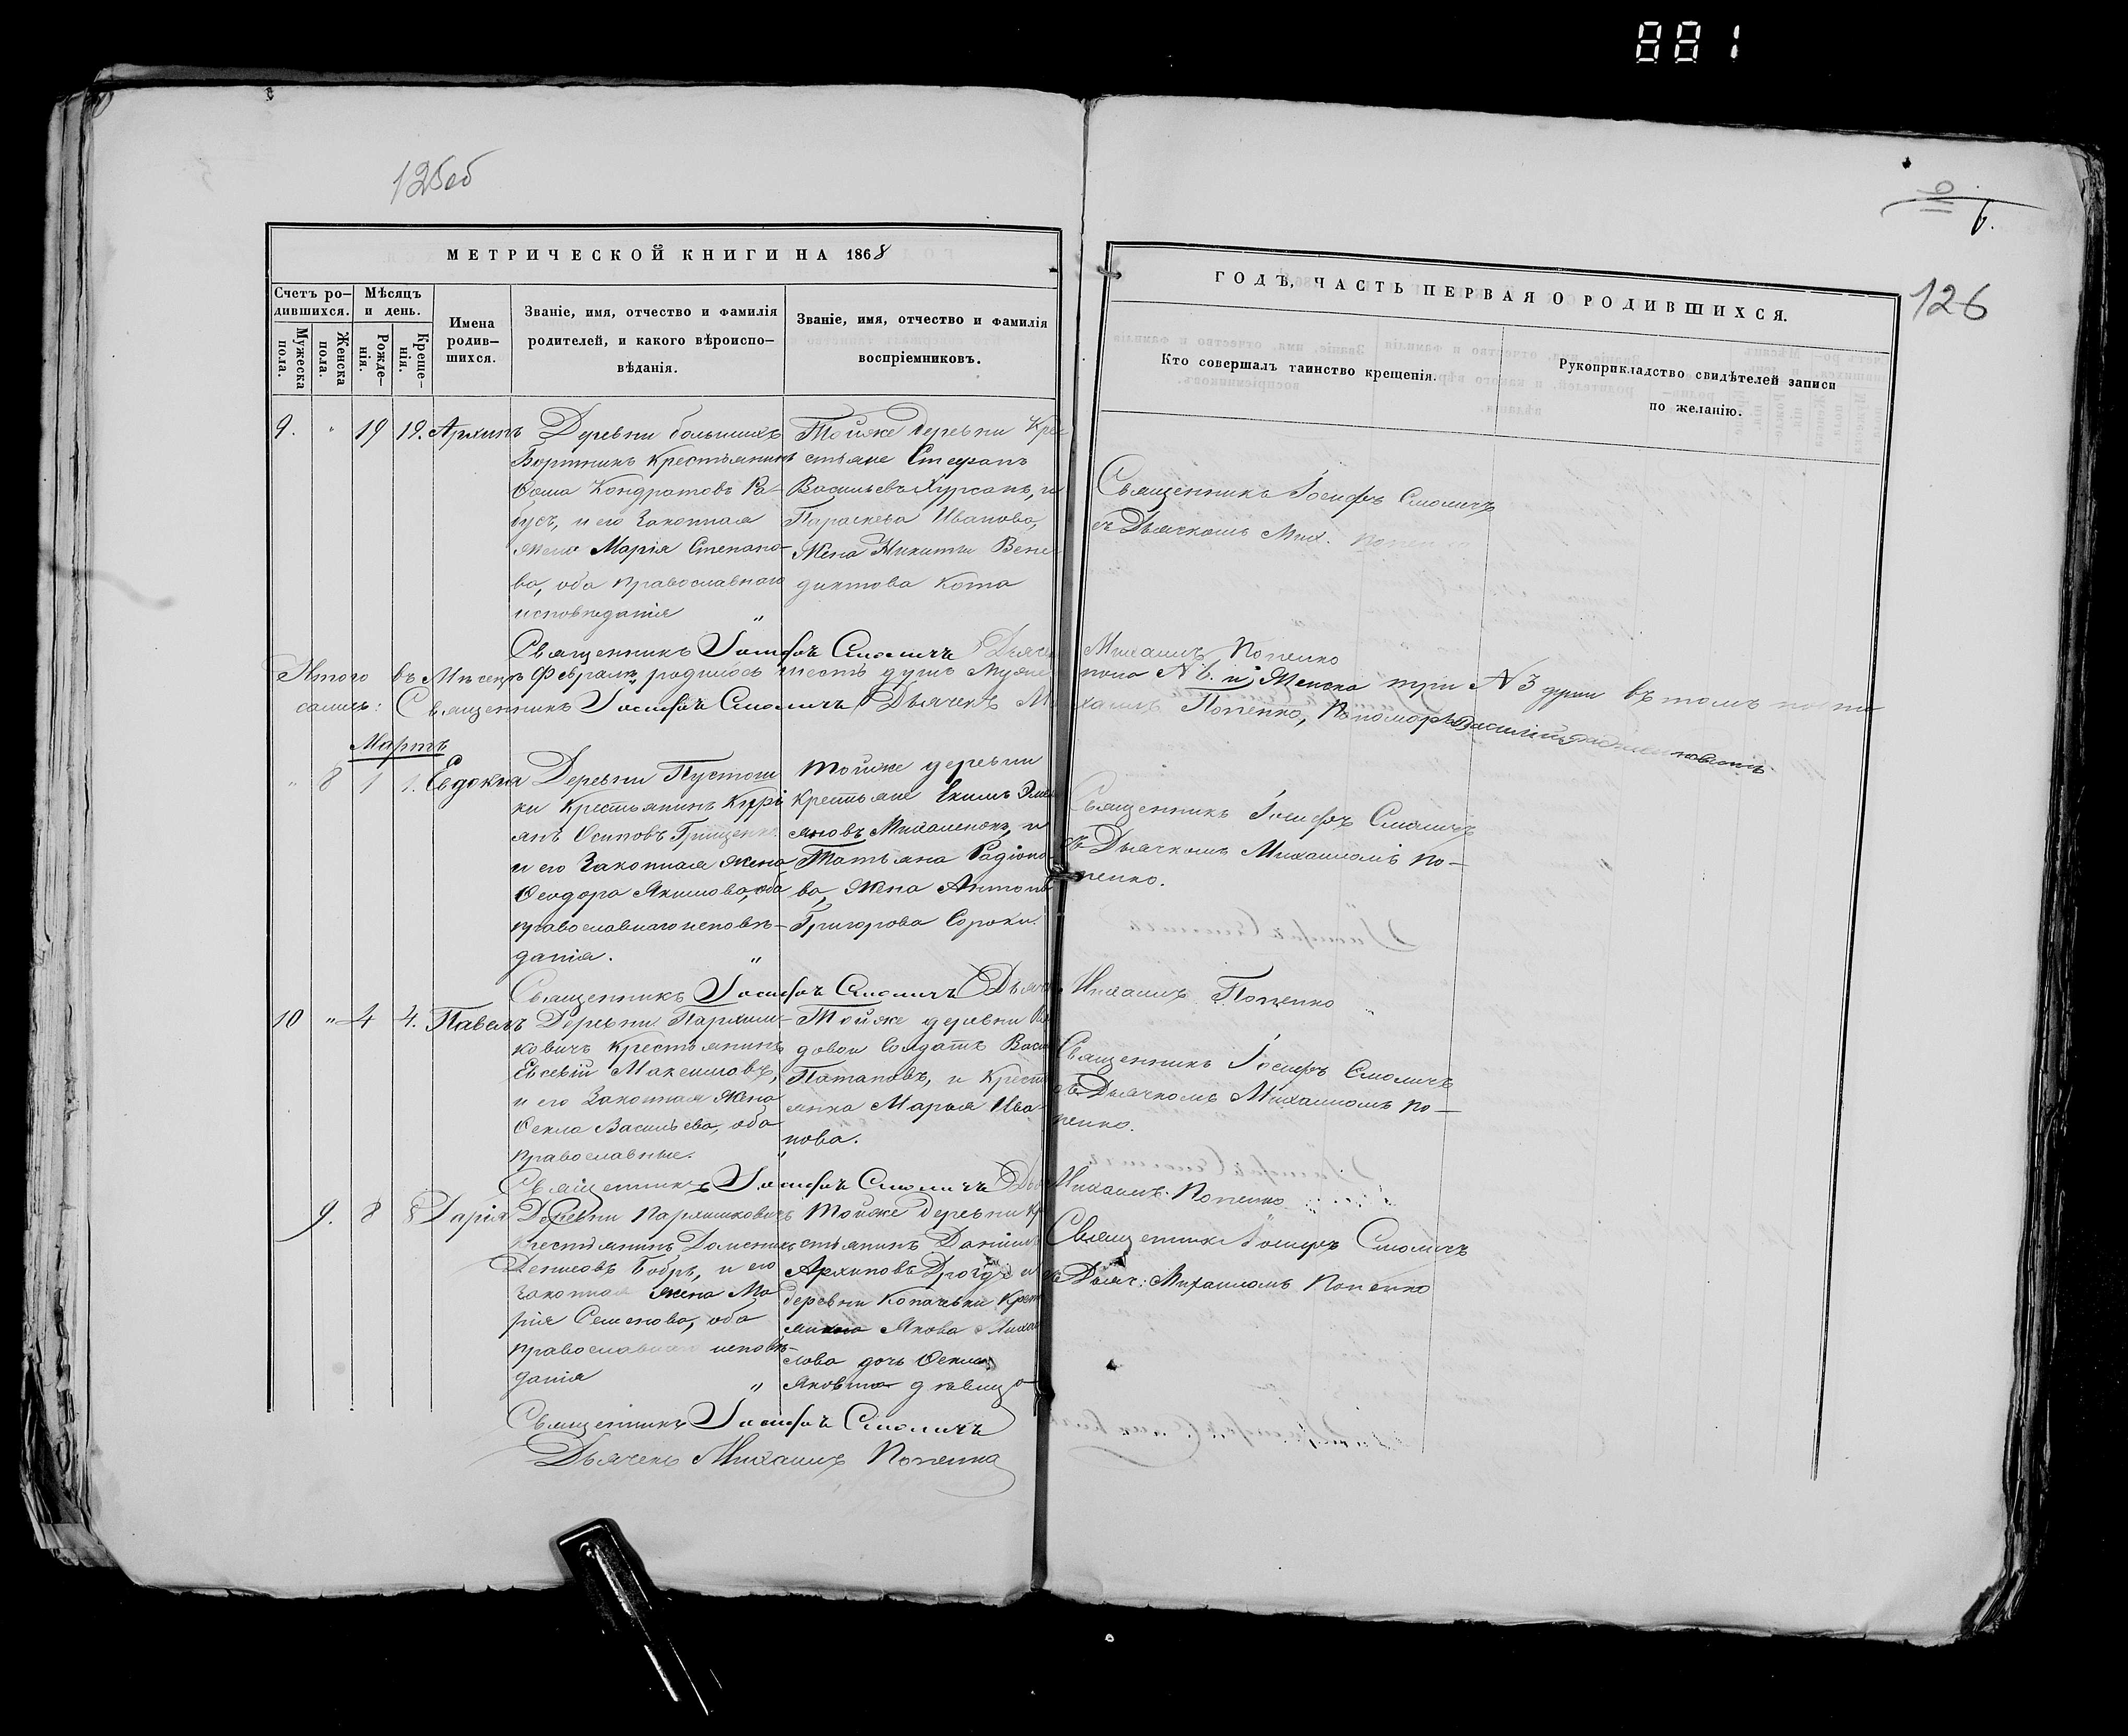 881
125об
МЕТРИЧЕСКОЙ КНИГИ НА 1868
Счетъ ро-
дившихся.
Мѣсяцъ
и день.
Мужеска
пола.
Женска
пола.
Рожде-
нія.
Креще-
нія.
Имена
родив-
шихся.
Званіе, имя, отчество и фамилія
родителей, и какого вѣроиспо-
вѣданія.
Званіе, имя, отчество и фамилія
воспріемниковъ.
9. " 19 19. Архипъ
Деревни большихъ
Бортникъ крестьянинъ
Ѳома Кондратовъ Ра-
бусъ, и его законная
жена Марія Степано-
ва, оба православнаго
исповѣданія "
Тойже деревни Кре
стьяне Стефанъ
Васильевъ Хурсанъ, и
Параскева Иванова,
жена Никиты Вене
диктова Кота
Священникъ Іосифъ Смоличъ Дьяче
Итого въ Мѣсецѣ Февралѣ родилось шесть душъ муже
Священникъ Іосифъ Смоличъ Дьячекъ Ми
Мартъ
" 8 1 1. Евдокія
Деревни Пустош
ки крестьянинъ Кирі
янъ Осиповъ Грищенк
и его законная жена
Ѳеодора Якимова, оба
православнаго исповѣ-
данія. "
Тойже деревни
Крестьяне Екимъ Эмел
яновъ Михаленокъ, и
Татьяна Радіоно
ва, жена Антона
Григорова Сороки.
Священникъ Іосифъ Смоличъ Дьяче
10 " 4 4. Павелъ
Деревни Паржи-
ковичъ крестьянинъ
Евсевій Максимовъ,
и его законная жена
Ѳекла Васильева, оба
православные. "
Тойже деревни
довой Солдатъ Васи
Потаповъ, и Крест
янка Марья Ива-
нова.
Священникъ Іосифъ Смоличъ Дья
9. 8 8 Дарія
Деревни Паржиковичъ
крестьянинъ Доменик
Денисовъ Бобръ, и его
законная жена Ма
рія Семенова, оба
православнаго исповѣ-
данія "
Тойже деревни Кр
естьянинъ Даніилъ
Архиповъ Дрозд и
деревни Копачевки Крест
Якова Миха
лова дочь Ѳекла
Яковна дѣвица
Священникъ Іосифъ Смоличъ
Дьячекъ Михаилъ Попенко
6.
126
ГОДЪ, ЧАСТЬ ПЕРВАЯ О РОДИВШИХСЯ.
Кто совершалъ таинство крещенія.
Рукоприкладство свидѣтелей записи
по желанію.
Священникъ Іосифъ Смоличъ
съ Дьячкомъ Мих. Попенко
Михаилъ Попенко
пола N 6. и Женска три N 3 душъ въ томъ
хаилъ Попенко, Пономарь Василій
Священникъ Іосифъ Смоличъ
съ Дьячкомъ Михаиломъ По-
пенко.
Михаилъ Попенко
Священникъ Іосифъ Смоличъ
съ Дьячкомъ Михаиломъ По-
пенко.
Михаилъ Попенко
Священникъ Іосифъ Смоличъ
съ Дьяч: Михаиломъ Попенко